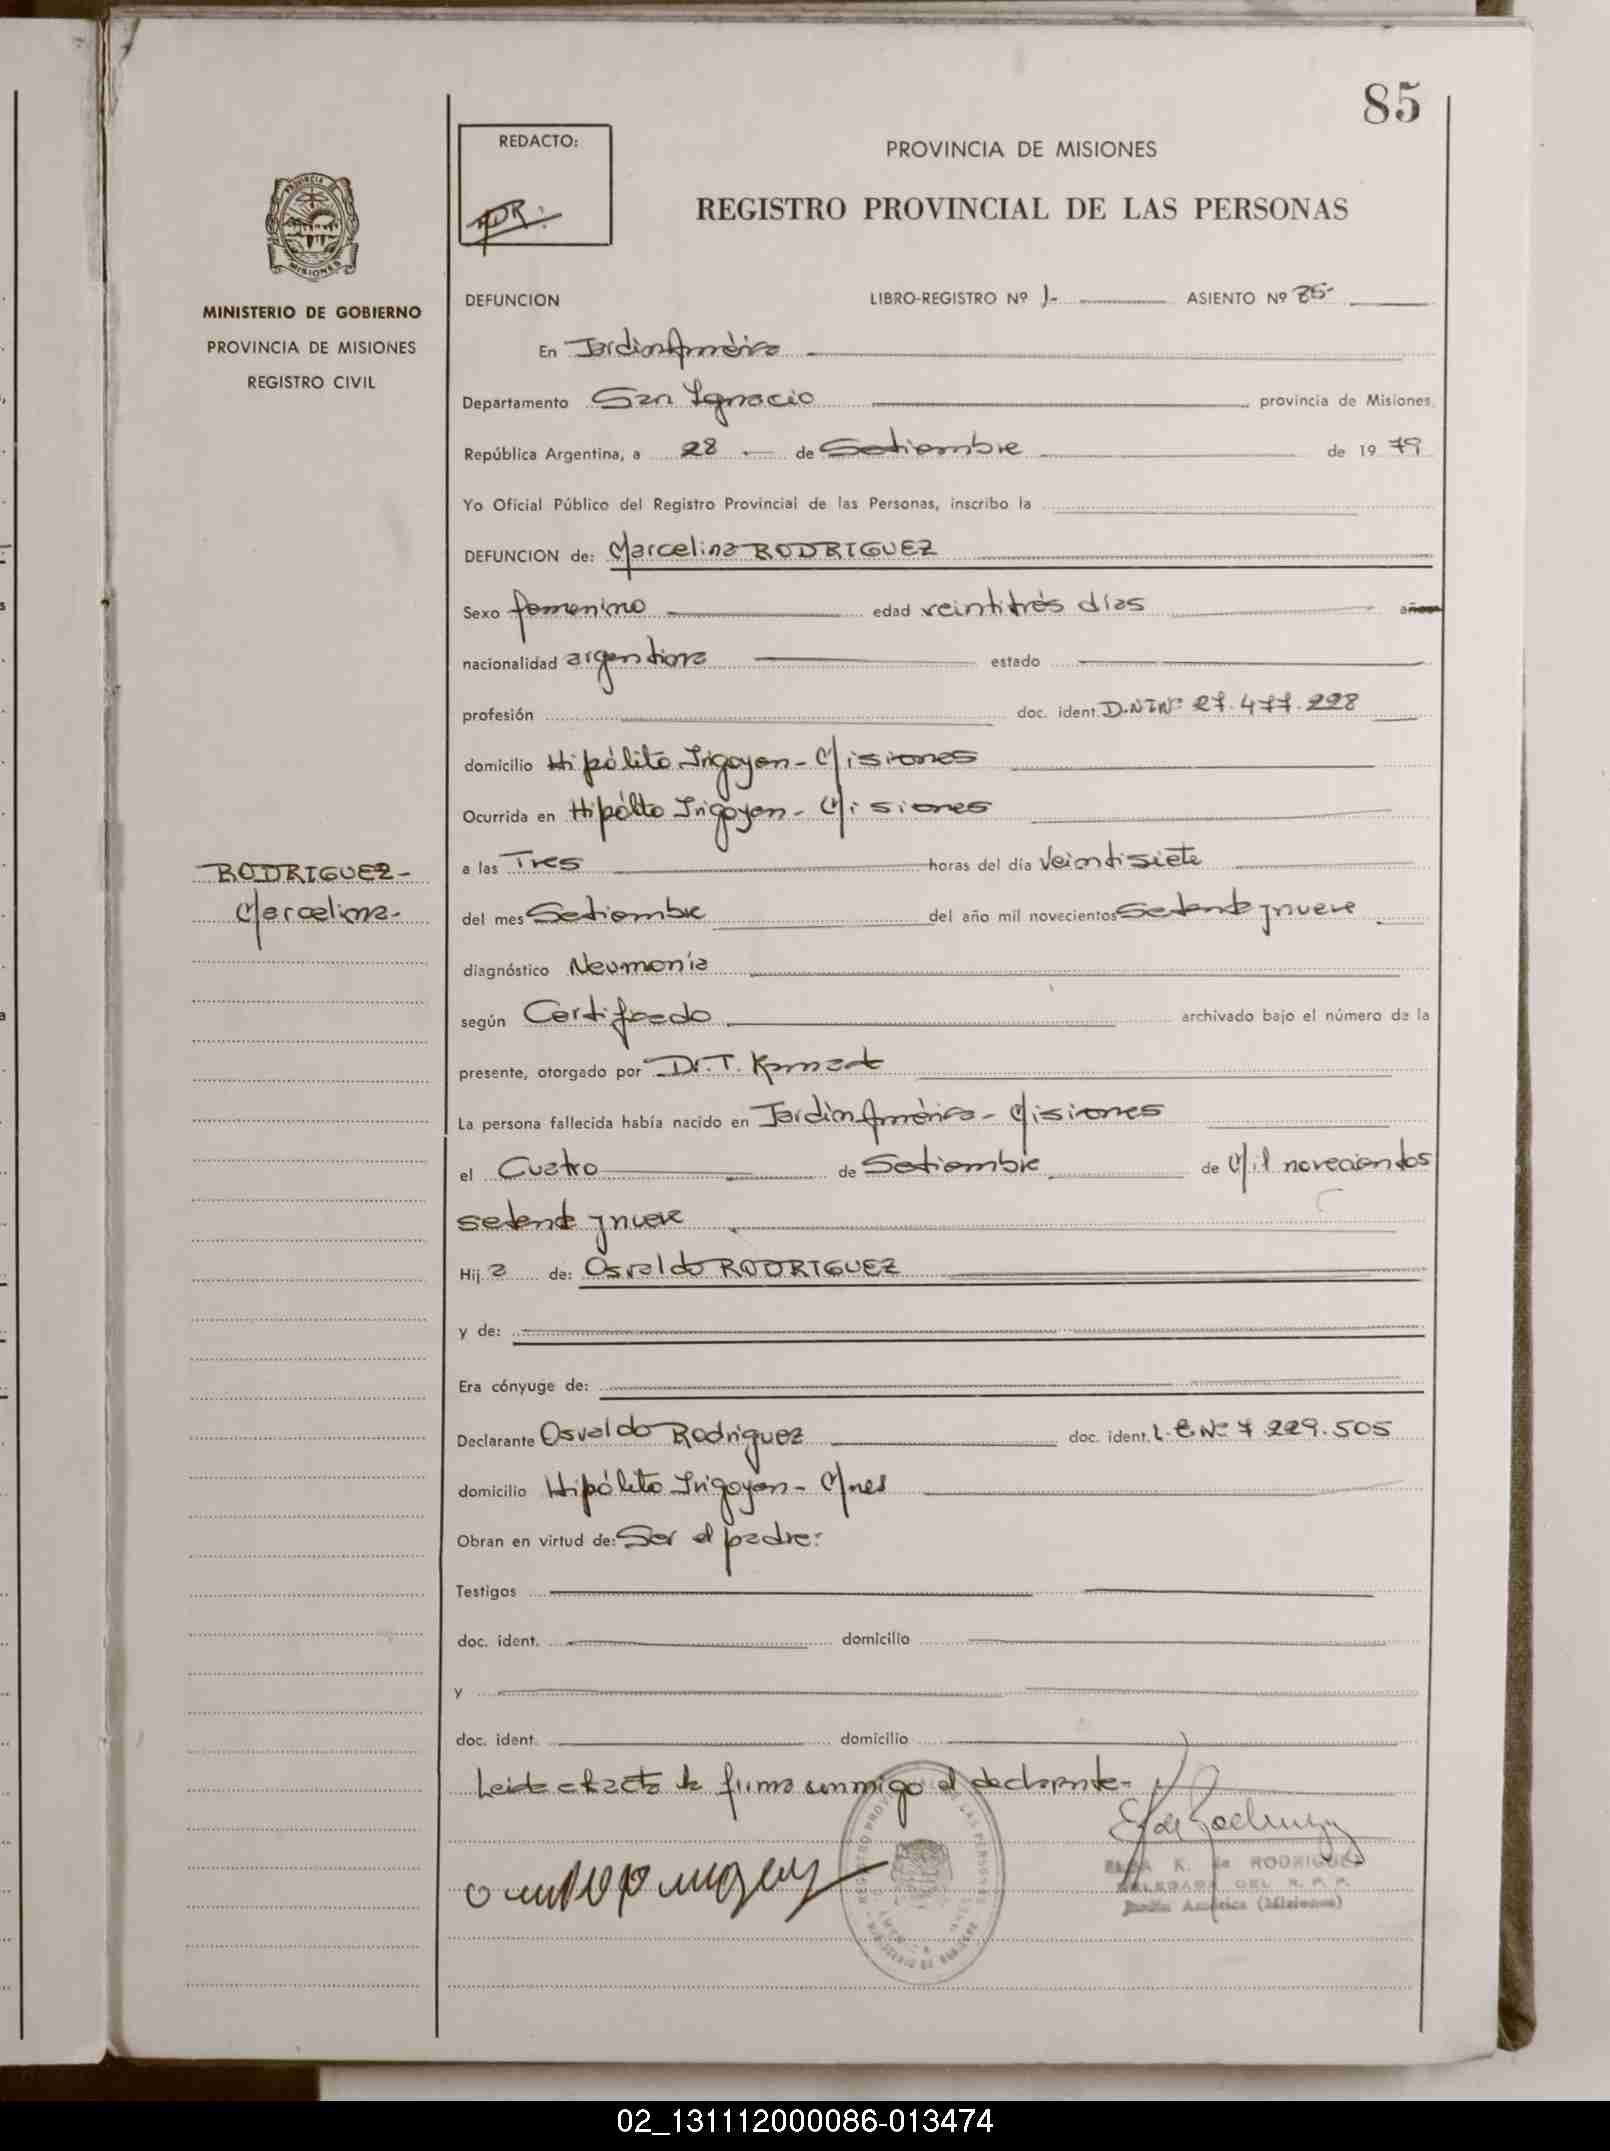 85
REDACTO:
PROVINCIA DE MISIONES
REGISTRO PROVINCIAL DE LAS PERSONAS
PROVINCIA DE
MISIONES
MINISTERIO DE GOBIERNO
PROVINCIA DE MISIONES
REGISTRO CIVIL
DEFUNCION LIBRO-REGISTRO Nº 1- ASIENTO Nº 85-
En Jardin América
Departamento San Ignacio provincia de Misiones,
República Argentina, a 28 - de Setiembre de 1979
Yo Oficial Público del Registro Provincial de las Personas, inscribo la
DEFUNCION de: Marcelina RODRIGUEZ
Sexo femenino edad veintitrés días años
nacionalidad argentina estado
profesión doc. ident. D.N.I Nº 27.477.228
domicilio Hipólito Irigoyen - Misiones
Ocurrida en Hipólto Irigoyen - Misiones
RODRIGUEZ-
Marcelina-
a las Tres horas del día Veintisiete
del mes Setiembre del año mil novecientos Setenta y nueve
diagnóstico Neumonía
según Certificado archivado bajo el número de la
presente, otorgado por Dr. T.
La persona fallecida había nacido en Jardin América - Misiones
el Cuatro de Setiembre de Mil novecientos
setenta y nueve
Hija de: Osvaldo RODRIGUEZ
y de:
Era cónyuge de:
Declarante Osvaldo Rodriguez doc. ident. L.E Nº 7.229.505
domicilio Hipólito Irigoyen - Mnes
Obran en virtud de: Ser el padre:
Testigos
doc. ident. domicilio
y
doc. ident. domicilio
Leida el acta la firma conmigo el declarante-
K. de RODRIGUEZ
DELEGADA DEL R. P. P.
Jardín América (Misiones)
02_131112000086-013474